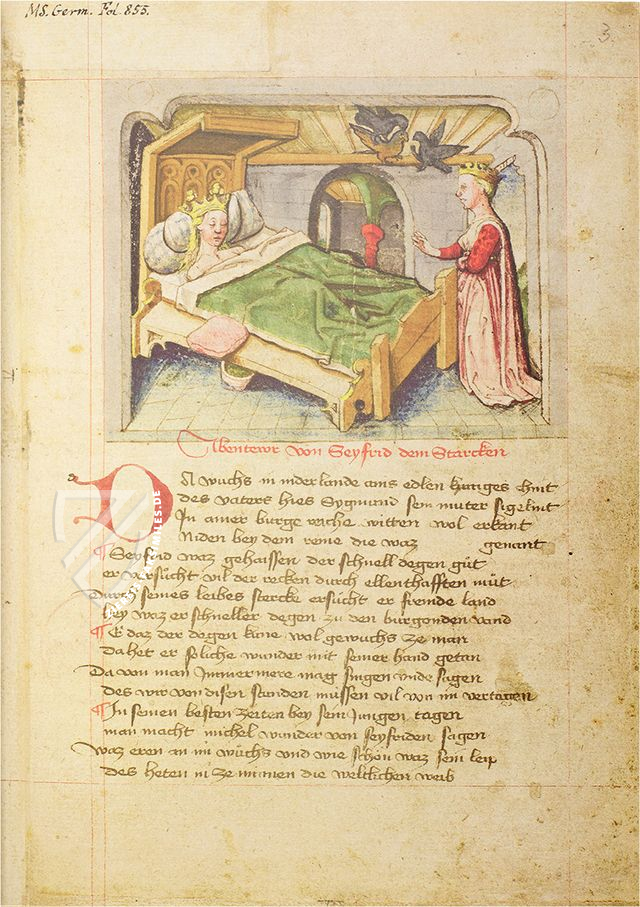 MS. Germ. Fol. 855.
3.
Abentewr von Seyfrid dem Starcken
DA wuchs in niderlande ains edlen kuniges chint
des vaters hies Sygmund sein muter sigelint
In ainer burge reiche witten wol erkant
Niden bey dem reine die waz genant
¶ Seyfrid waz gehaissen der schnell degen gůt
er versůcht vil der recken durch ellenthafften můt
Durch seines leibes stercke ersůcht er fremde land
hey waz er schneller degen zu den burgonden vand
¶ E daz der degen küne wol gewuchs ze man
da het er soliche wunder mit seiner hand getan
Da von man Immer mere mag singen unde sagen
des wir von disen stunden müssen vil von im vertagen
¶ In seinen besten zeiten bey sein Jungen tagen
man macht michel wunder von seyfriden sagen
waz eren an im wůchs und wie schön waz sein leip
des heten in ze minnen die weltlichen weib